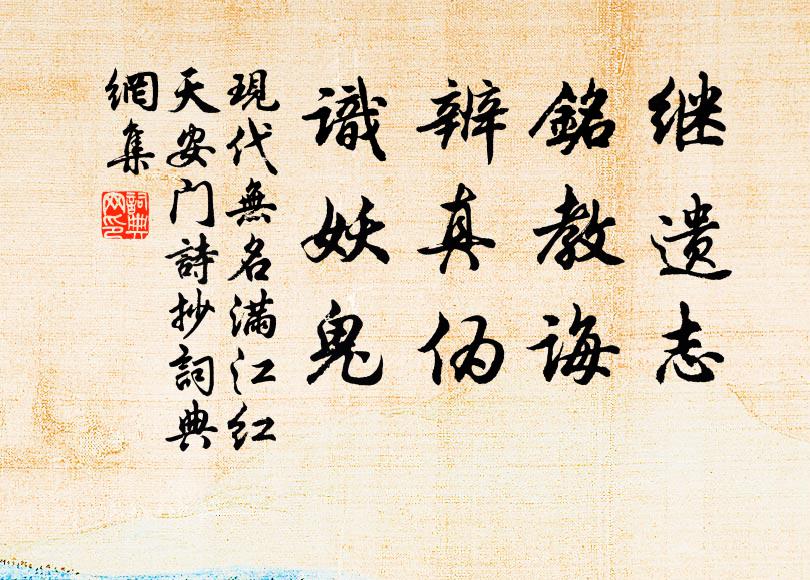 继遗志
銘教诲
辨真伪
識妖鬼
現代無名满江红
天安门詩抄詞典
網集
詞典
网印